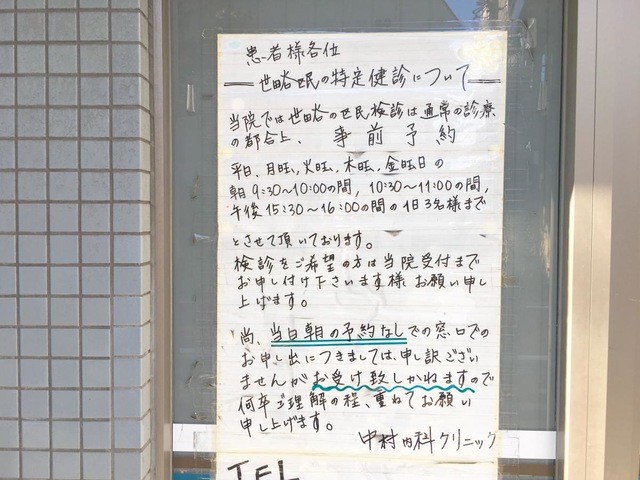 患者様各位
世田谷区民の特定健診について
当院では世田谷の区民検診は通常の診療
の都合上、事前予約
平日、月旺、火旺、木旺、金旺日の
朝9:30～10:00の間、10:30～11:00の間,
午後15:30～16:00の間の1日3名様まで
とさせて頂いております。
検診をご希望の方は当院受付まで
お申し付け下さいます様お願い申し
上げます。
尚、当日朝の予約なしでの窓口での
お申し出につきましては、申し訳ござい
ませんがお受け致しかねますので
何卒ご理解の程、重ねてお願い
申し上げます。
中村内科クリニック
TEL